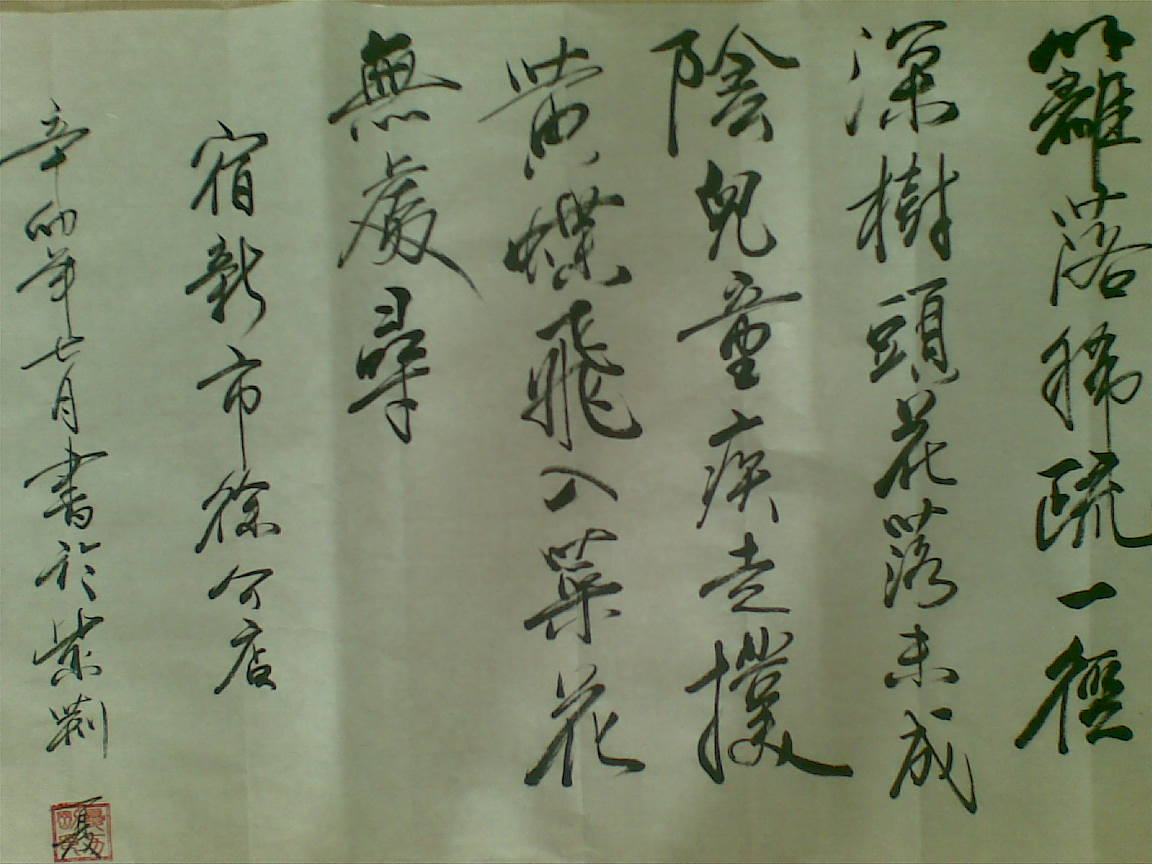 籬落稀疏一徑
深樹頭花落未成
陰兒童疾走撲
黄蝶飛入菜花
無處尋
宿新市徐公店
辛卯年七月書於紫荆